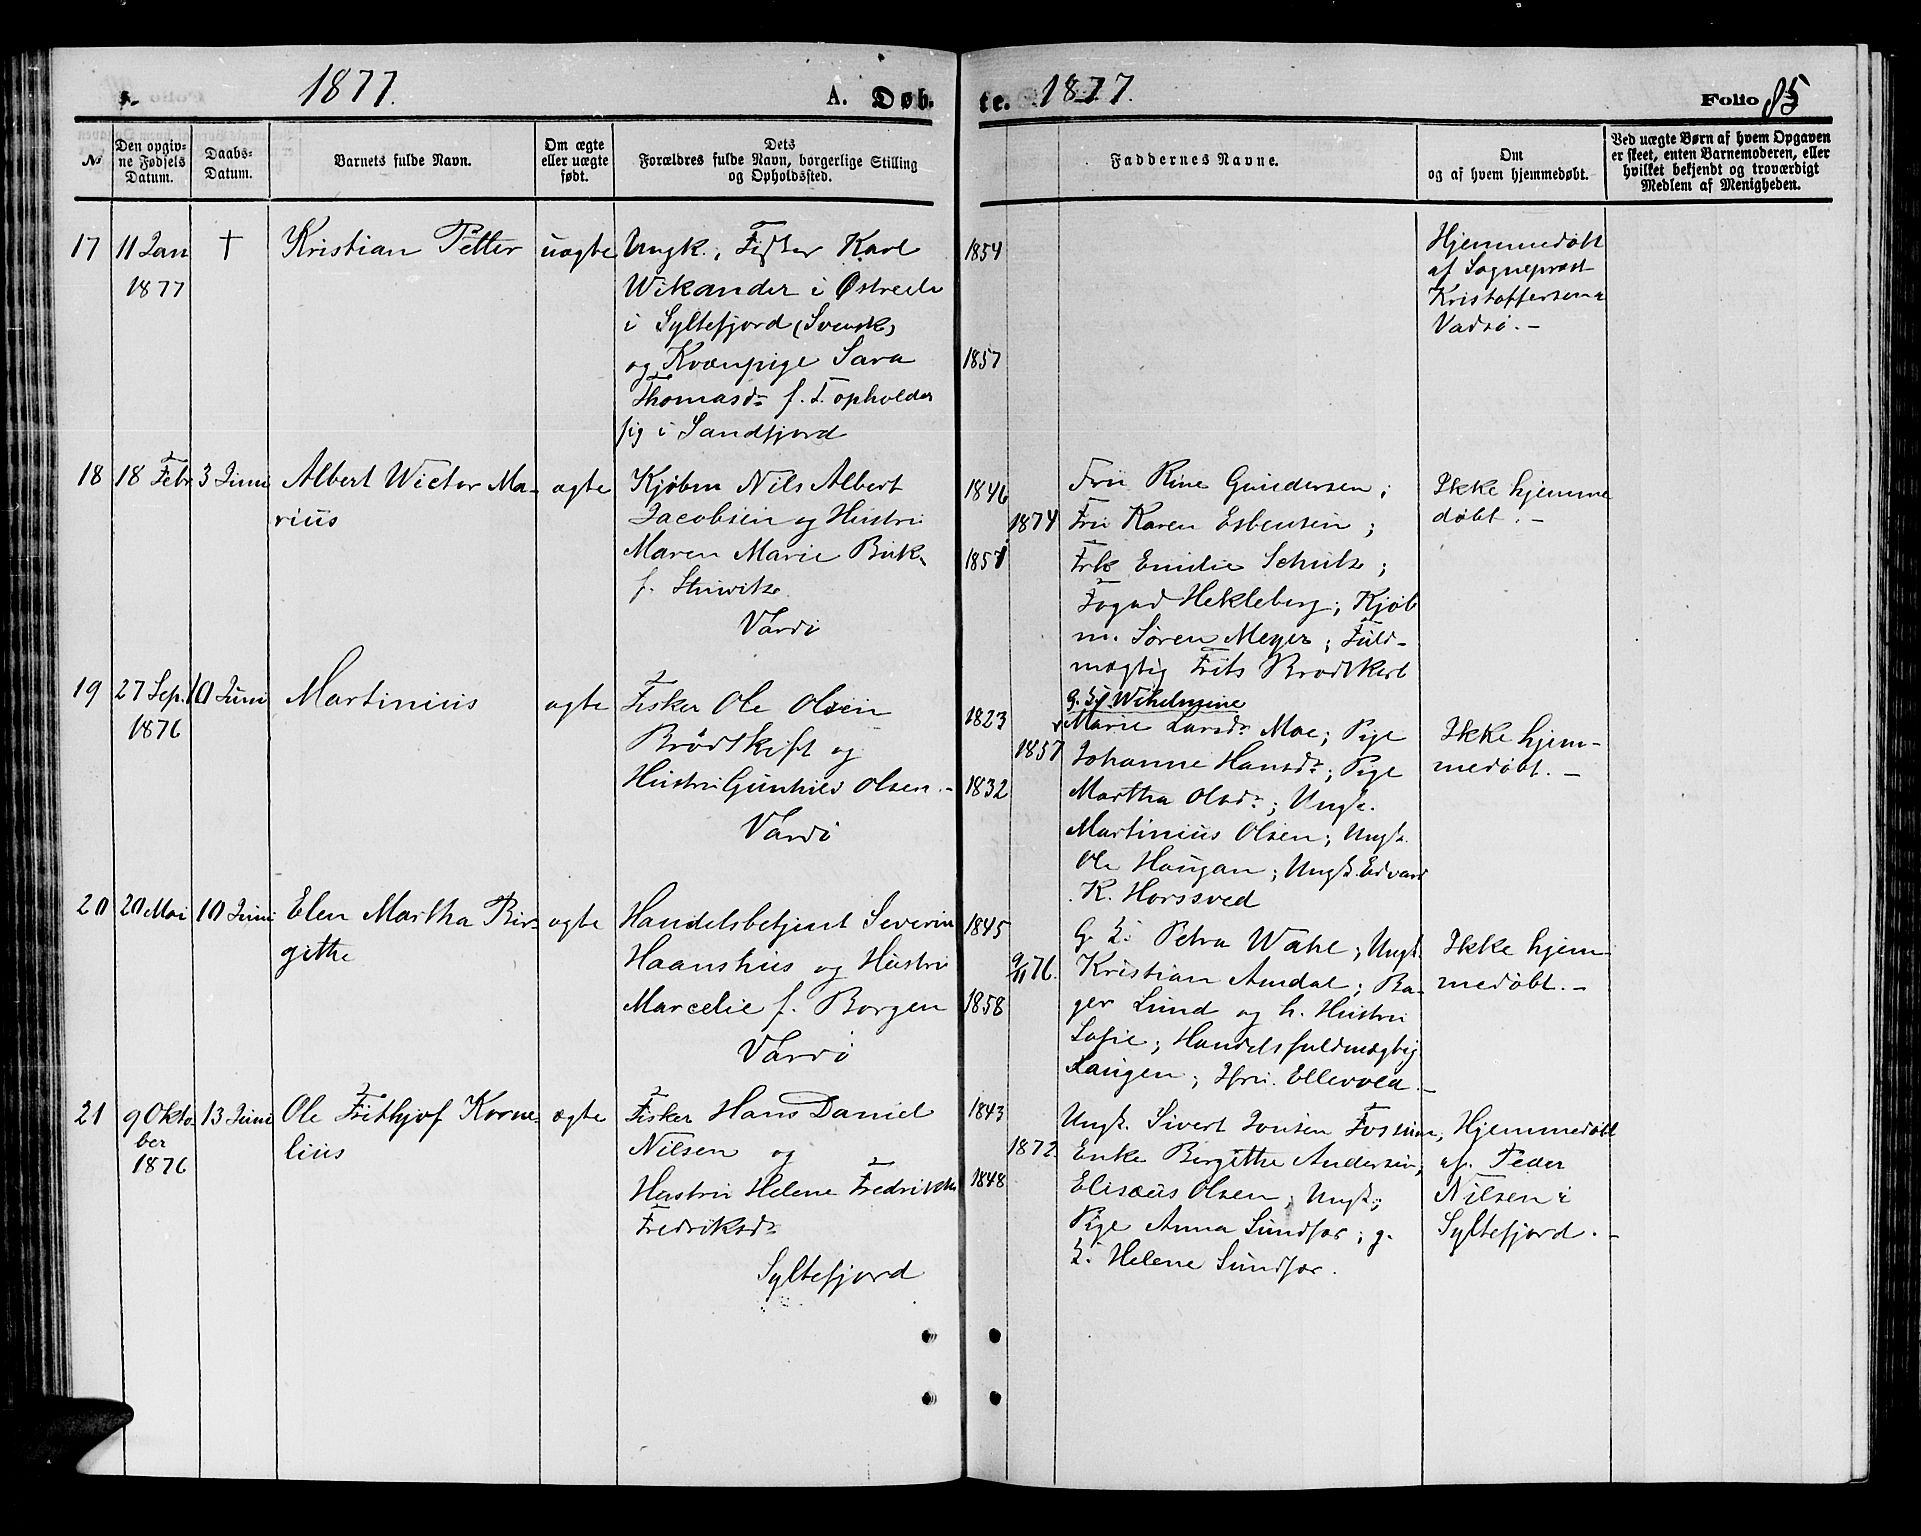 1877.
A. Døb.
te. 1877.
Folio 85
No
Den opgiv-
ne Fødsels
Datum.
Daabs-
Datum.
Barnets fulde Navn.
Om ægte
eller uægte
født.
Dets
Forældres fulde Navn, borgerlige Stilling
og Opholdssted.
Faddernes Navne.
Om
og af hvem hjemmedøbt.
Ved uægte Børn af hvem Opgaven
er skeet, enten Barnemoderen, eller
hvilket bekjendt og troværdigt
Medlem af Menigheden.
17
11 Jan
1877
†
Kristian Petter
uægte
Ungk., Fisker Karl
Wikander i
i Syltefjord (Svensk)
og Kvænpige Sara
Thomasdr f. T. opholder
sig i Sandfjord
1854
1857
Hjemmedøbt
af Sognepræst
Kristoffersen i
Vadsø. -
18
18 Febr
3 Juni
Albert Wictor Ma-
rius
ægte
Kjøbm Nils Albert
Jacobsen og Hustru
Maren Marie Buk
f.
Vardø
1846
1874
1857
Fru Rine Gundersen;
Fru Karen Esbensen;
Frk Emilie Schulz;
Foged Hekleberg; Kjøb
m. Søren Meyer; Fuld-
mægtig Frits Brodtkorb
Ikke hjemme
døbt. -
19
27 Sep.
1876
10 Juni
Martinius
ægte
Fisker Ole Olsen
Brødskift og
Hustru Gunhild Olsen. -
Vardø
1823
1857
1832
G. Wilhelmine
Marie Larsdr Moe; Pige
Johanne Hansdr; Pige
Martha Olsdr; Ungk.
Martinius Olsen; Ungk.
Ole Haugan; Ungk. Edvard
K. Horssved
Ikke hjem-
medøbt. -
20
20 Mai
10 Juni
Elen Martha Bir-
githe
ægte
Handelsbetjent Severin
Haanshus og Hustru
Marcelie f. Borgen
Vardø
1845
9/11 76.
1858
G. K. Petra Wahl; Ungk.
Kristian Amdal; Ba-
ger Lund og h. Hustru
Sofie; Handelsfuldmægtig
Laugen; Ellevold. -
Ikke hjem-
medøbt. -
21
9 Okto-
ber
1876
13 Juni
Ole Frithjof Korne-
lius
ægte
Fisker Hans Daniel
Nilsen og
Hustru Helene Fredrikke
Fredriksdr
Syltefjord
1843
1872
1848
Ungk. Sivert Jonsen Fossum,
Enke Bergithe Andersen,
Elisæus Olsen, Ungk.;
Pige Anna Sundfær; g.
K. Helene Sundfær.
Hjemmedøbt
af Peder
Nilsen i
Syltefjord. -